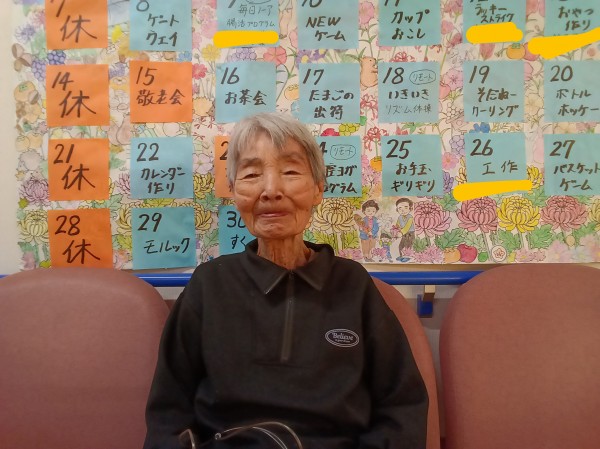 7
休
8
ゲート
ウェイ
毎日ノア
腸活プログラム
10
NEW
ゲーム
11
カップ
おこし
ラッキー
ストライク
おやつ
作り
14
休
15
敬老会
16
お茶会
17
たまごの
出荷
18
リモート
いきいき
リズム体操
19
そだねー
カーリング
20
ボトル
ホッケー
21
休
22
カレンダー
作り
リモート
25
お手玉
ギリギリ
26
工作
27
バスケット
ゲーム
28
休
29
モルック
30
すく
Believe